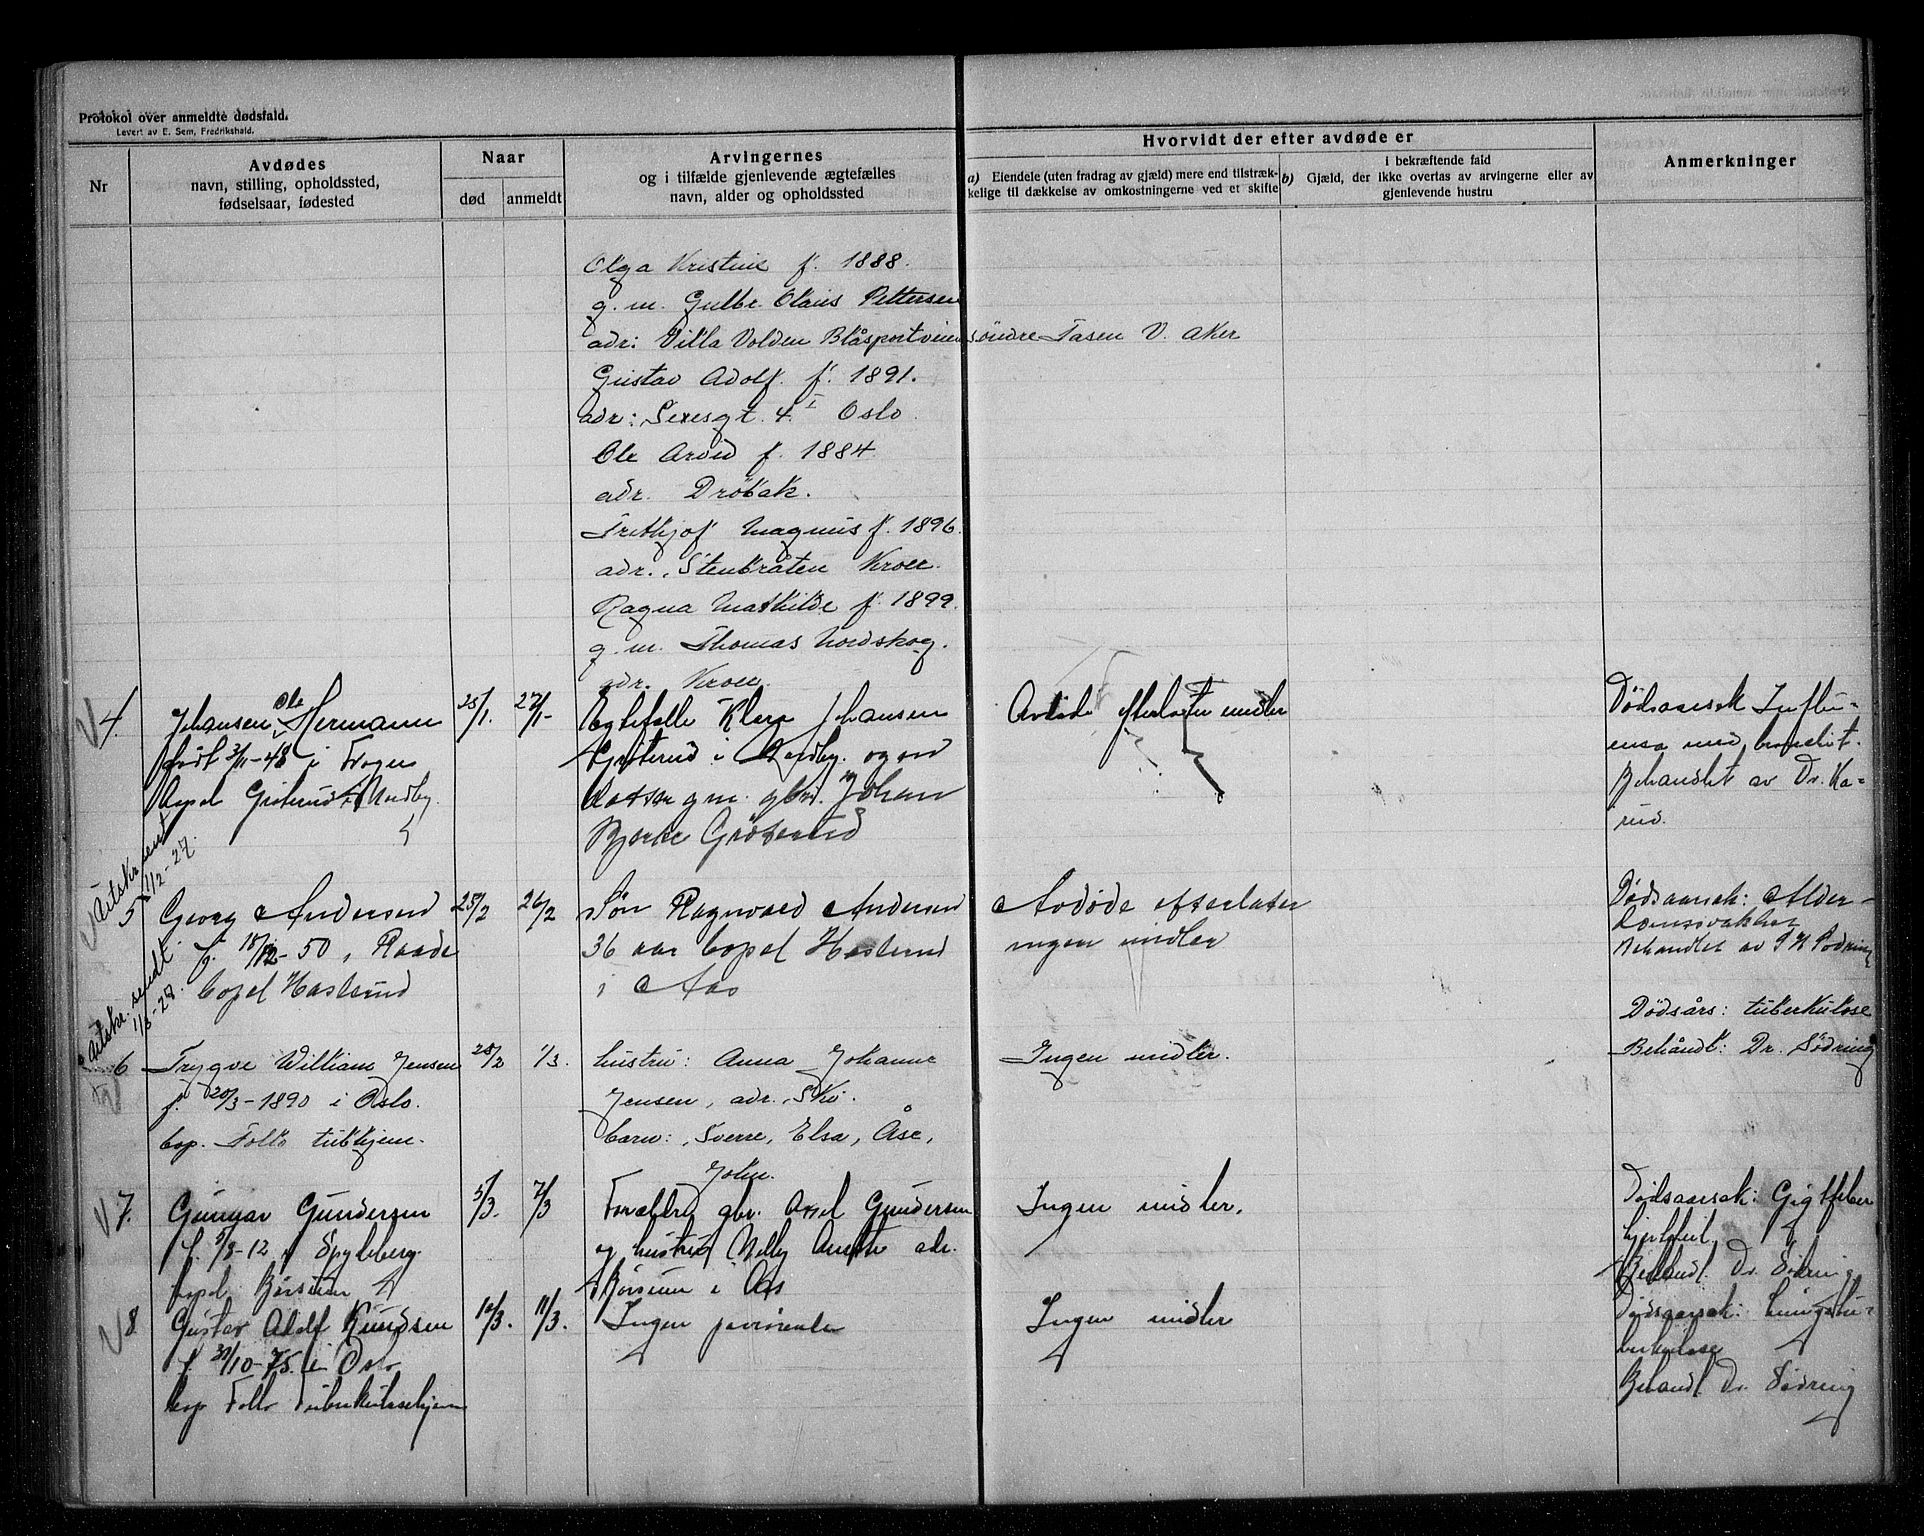 Protokol over anmeldte dødsfald.
Levert av E. Sem, Fredrikshald.
Nr
Avdødes
navn, stilling, opholdssted,
fødselsaar, fødested
Naar
død
anmeldt
Arvingernes
og i tilfælde gjenlevende ægtefælles
navn, alder og opholdssted
Hvorvidt der efter avdøde er
a) Eiendele (uten fradrag av gjæld) mere end tilstræk-
kelige til dækkelse av omkostningerne ved et skifte
b) i bekræftende fald
Gjæld, der ikke overtas av arvingerne eller av
gjenlevende hustru
Anmerkninger
Olga Kristine f. 1888.
g. m. Gulbr. Olaus Pettersen
adr: Villa Volden søndre Tasen V. Aker
Gustav Adolf. f. 1891.
adr: 4. I Oslo.
Ole Arvid f. 1884
adr. Drøbak.
Fritkjof Magnus f. 1896.
adr. Stenbråten Kroer.
Ragna Mathilde f. 1899.
g. m. Thomas Nordskog.
adr. Kroer.
V 4.
Johansen Ole Hermann
født i Frogn
Grøterud i
25/1.
27/1-
Ægtefælle Klara Johansen
Grøterud i og en
datter g.m. gbr. Johan
Bjerke Grøterud
Avdøde efterlater midler
Dødsaarsak Influ-
ensa med bronchit.
Behandlet av Dr. Ka-
rud.
Utskr. sent
1/2-27.
5
Georg Andersen
f. 18/12-50, Raade
bopel Hasterud
25/2
26/2
Søn Ragnvald Andersen
36 aar bopel Hasterud
i Aas
Avdøde efterlater
ingen midler
Dødsaarsak: Alder-
domssvakhet
Behandlet av
Utskr. sendt
1/3-27.
6
Trygve William Jensen
f. 20/3-1890 i Oslo.
bop. Follo tubhjem.
28/2
1/3.
hustru: Anna Johanne
Jensen, adr. Ski.
barn: Sverre, Elsa, Åse,
John.
Ingen midler.
Dødsårs: tuberkulose
Behåndl: Dr. Södring
V 7.
Gunnar Gundersen
f. 5/8-12 i Spydeberg.
bopel Børsum
5/3.
7/3
Forældre gbr. Axel Gundersen
og hustru Nelly Anette adr.
Børsum i Aas
Ingen midler.
Dødsaarsak: Gigtfeber
hjertefeil.
Behandl. Dr. Södring
V 8
Gustav Adolf Knudsen
f. 31/10-75. i Oslo
bop Follo Tuberkulosehjem
10/3.
11/3.
Ingen paarørende
Ingen midler
Dødsaarsak: Lungetu-
berkulose
Behandl Dr. Södring